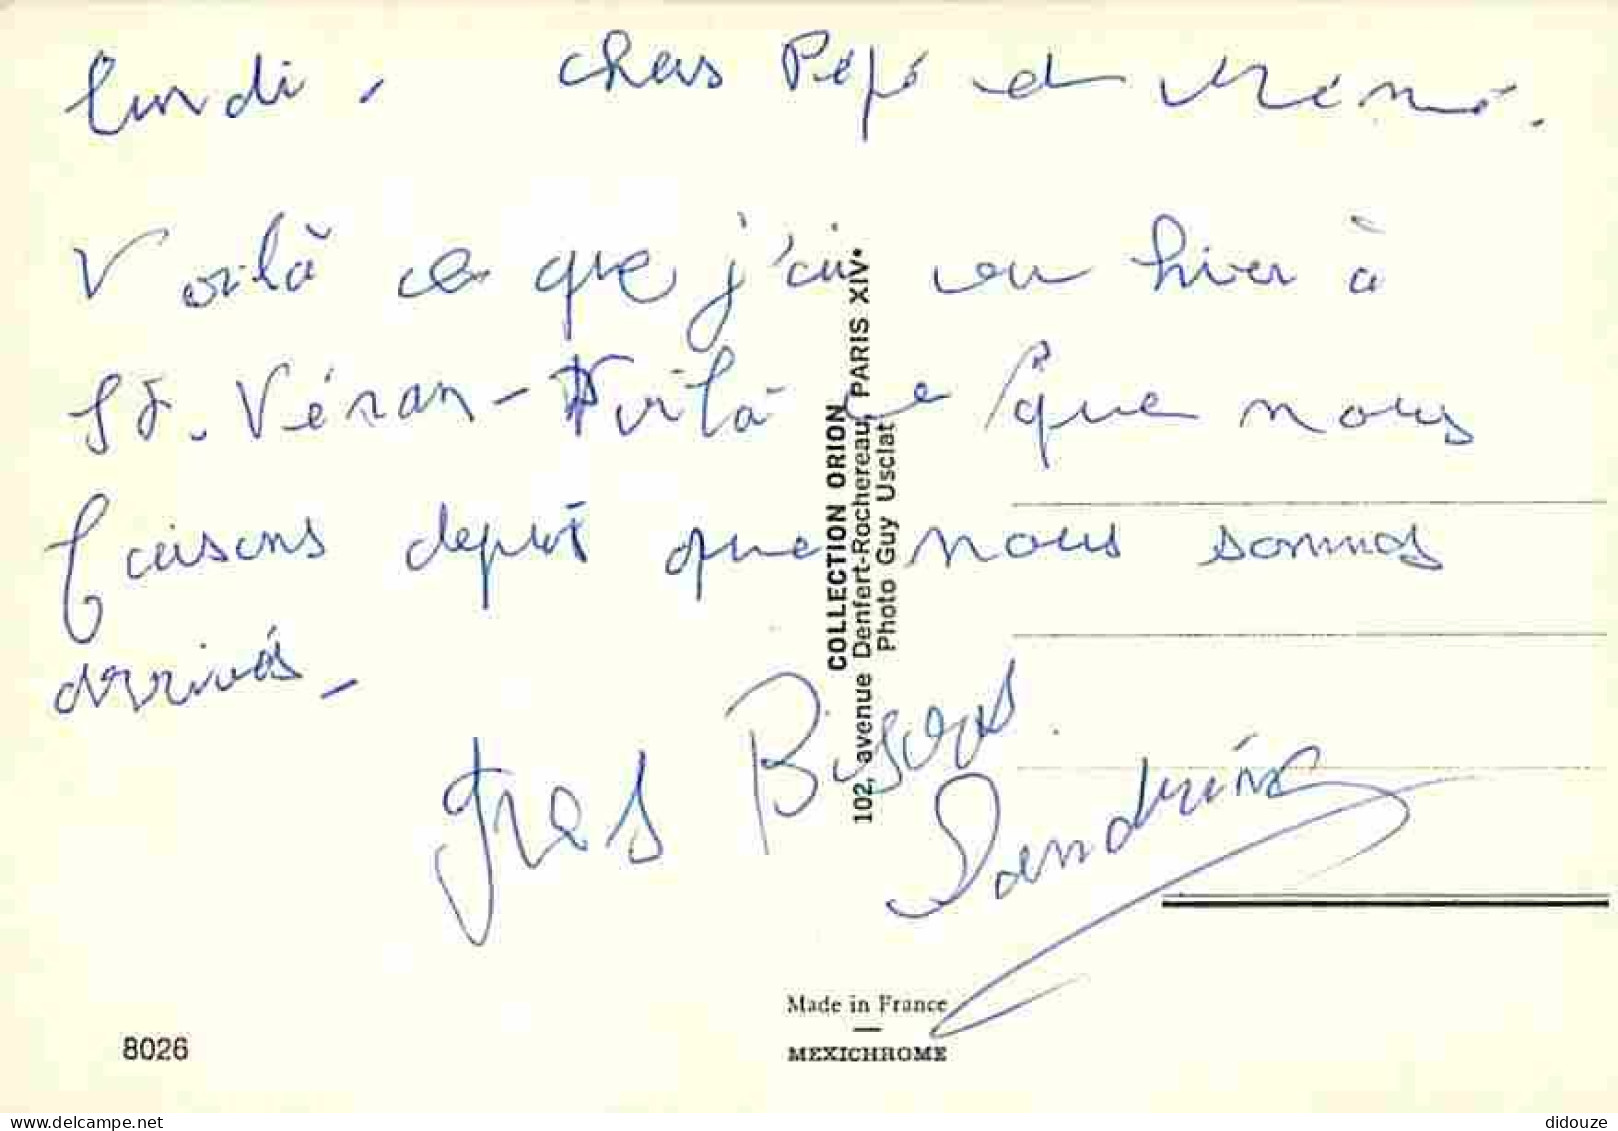 lundi - chers Pépé et Mémé.
Voilà ce que j'ai vu hier à
St. Véran - Voilà ce que nous
faisons depuis que nous sommes
arrivés -
Gros Bisous
Sandrine
COLLECTION ORION
102, avenue Denfert-Rochereau, PARIS XIV•
Photo Guy Usclat
Made in France
MEXICHROME
8026
didouze